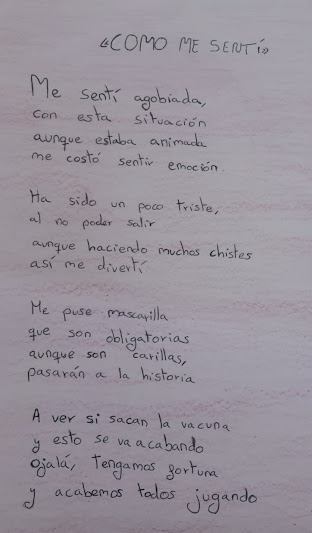 «COMO ME SENTÍ»
Me sentí agobiada,
con esta situación
aunque estaba animada
me costó sentir emoción.
Ha sido un poco triste,
al no poder salir
aunque haciendo muchos chistes
así me divertí
Me puse mascarilla
que son obligatorias
aunque son carillas,
pasarán a la historia
A ver si sacan la vacuna
y esto se va acabando
ojalá, Tengamos fortuna
y acabemos todos jugando